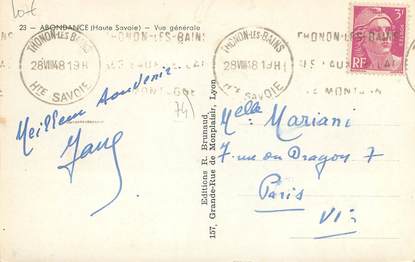 23 - ABONDANCE (Haute Savoie) - Vue générale
THONON-LES-BAINS
28 VIII 48 19H
HTE SAVOIE
THONON-LES-BAINS
THONON-LES-BAINS
28 VIII 48 19H
HTE SAVOIE
3F
RF
Meilleur souvenir
74
Editions R. Brunaud,
157, Grande-Rue de Monplaisir, Lyon
Melle Mariani
7 rue du Dragon 7
Paris
VIè